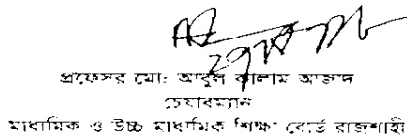 প্রফেসর মোঃ আবুল কালাম আজাদ
চেয়ারম্যান
মাধ্যমিক ও উচ্চ মাধ্যমিক শিক্ষা বোর্ড রাজশাহী